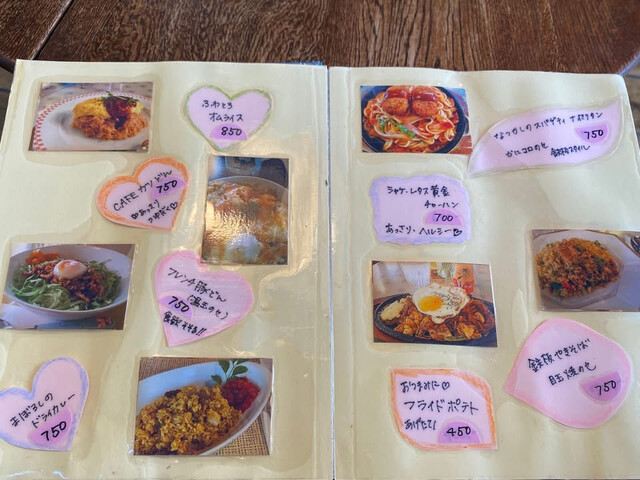 ふわとろ
オムライス
850
CAFEカツどん
750
あっさり
つゆだく
フレンチ豚どん
750 (温玉のせ)
食欲そそる!!
まぼろしの
ドライカレー
750
なつかしのスパゲティ ナポリタン
かにコロのせ 750
鉄板スタイル
シャケ・レタス黄金
チャーハン
700
あっさり・ヘルシー
鉄板やきそば
目玉焼のせ
750
おつまみに
フライドポテト
あげたて!
450